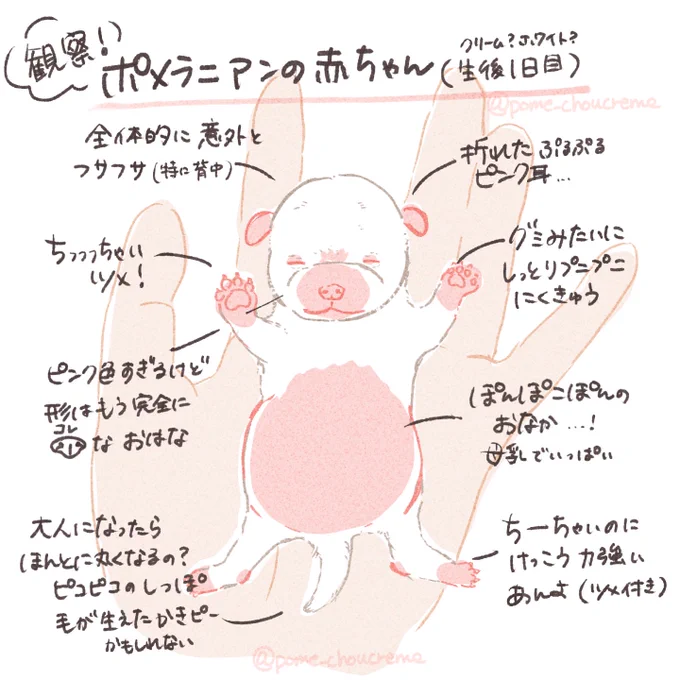 観察!
ポメラニアンの赤ちゃん(生後1日目)
クリーム?ホワイト?
@pome-choucreme
全体的に意外と
フサフサ(特に背中)
折れたぷるぷる
ピンク耳…
ちっっっちゃい
ツメ!
グミみたいに
しっとりプニプニ
にくきゅう
ピンク色すぎるけど
形はもう完全に
コレ
な おはな
ぽんぽこぽんの
おなか…!
母乳でいっぱい
大人になったら
ほんとに丸くなるの?
ピコピコのしっぽ
毛が生えたかきピー
かもしれない
ちーちゃいのに
けっこう力強い
あんよ(ツメ付き)
@pome-choucreme